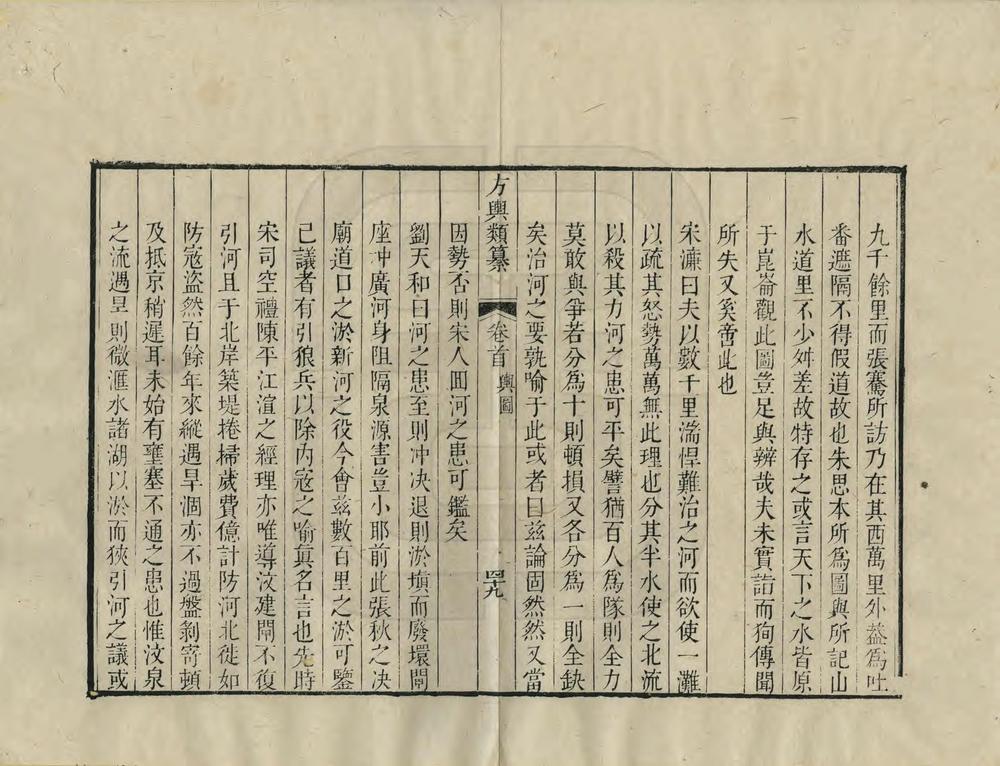 九千餘里而張騫所訪乃在其西萬里外葢爲吐
番遮隔不得假道故也朱思本所爲圖與所記山
水道里不少舛差故特存之或言天下之水皆原
于崑崙觀此圖豈足與辨哉夫未實詣而狥傳聞
所失又奚啻此也
宋濂曰夫以數千里湍悍難治之河而欲使一灘
以疏其怒勢萬萬無此理也分其半水使之北流
以殺其力河之患可平矣譬猶百人爲隊則全力
莫敢與爭若分爲十則頓損又各分爲一則全缺
矣治河之要孰喻于此或者曰兹論固然然又當
方輿類纂 卷首 輿圖 四十九
因勢否則宋人囬河之患可鑑矣
劉天和曰河之患至則冲决退則淤塡而廢壞閘
座冲廣河身阻隔泉源害豈小耶前此張秋之决
廟道口之淤新河之役今會兹數百里之淤可鑒
已議者有引狼兵以除内寇之喻眞名言也先時
宋司空禮陳平江瑄之經理亦唯導汶建閘不復
引河且于北岸築堤捲掃歲費億計防河北徙如
防寇盜然百餘年來縱遇旱涸亦不過盤剝寄頓
及抵京稍遲耳未始有壅塞不通之患也惟汶泉
之流遇旱則微滙水諸湖以淤而狹引河之議或